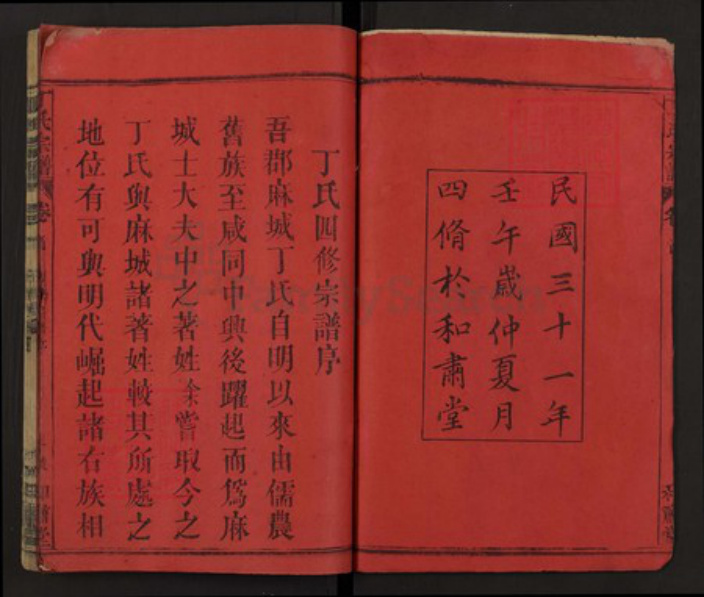 民國三十一年
壬午歲仲夏月
四脩於和肅堂
丁氏四修宗譜序
吾郡麻城丁氏自明以來由儒農
舊族至咸同中興後躍起而爲麻
城士大夫中之著姓余嘗取今之
丁氏與麻城諸著姓較其所處之
地位有可與明代崛起諸右族相
丁氏宗譜
卷首